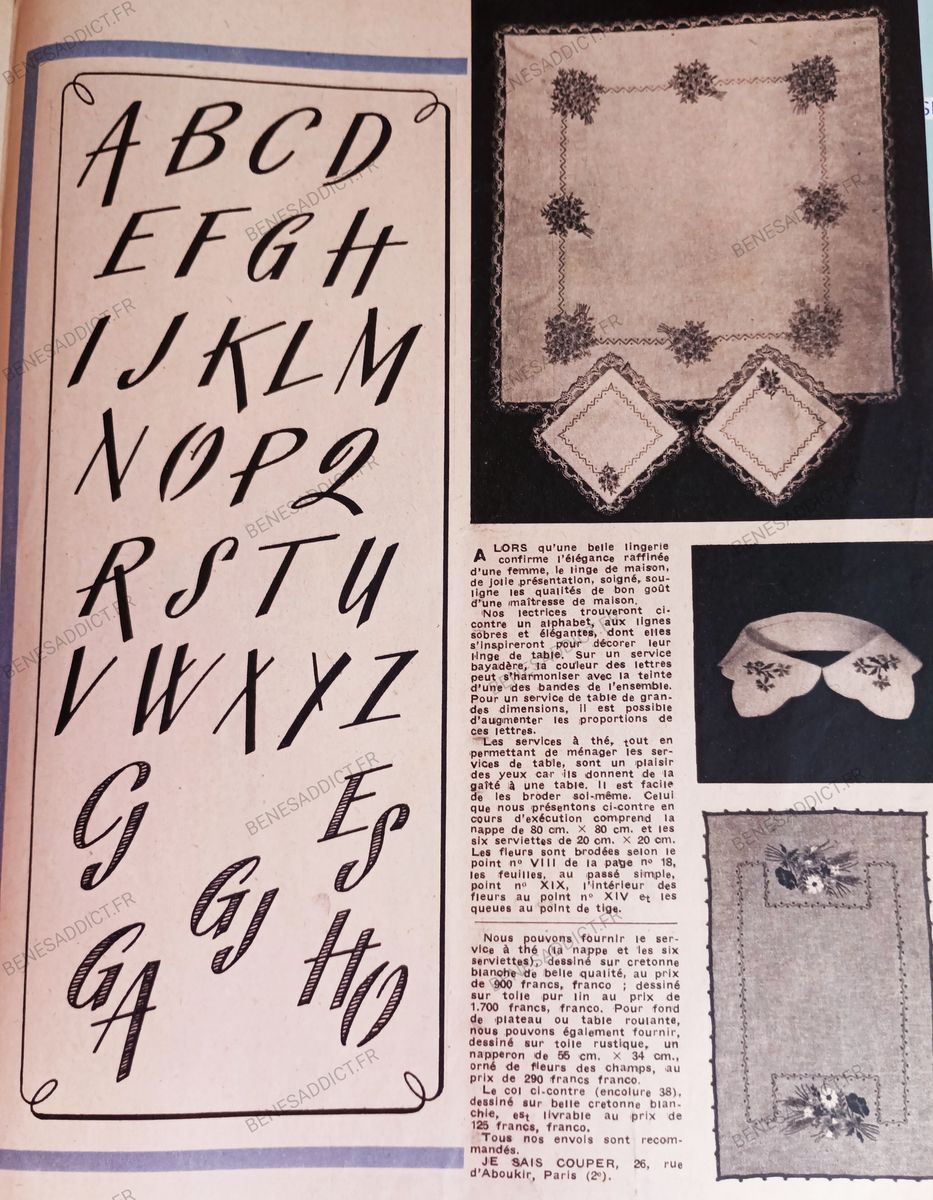 A B C D
E F G H
I J K L M
N O P Q
R S T U
V W X Y Z
CJ
ES
GJ
GA
HO
ALORS qu'une belle lingerie
confirme l'élégance raffinée
d'une femme, le linge de maison,
de jolie présentation, soigné, sou-
ligne les qualités de bon goût
d'une maîtresse de maison.
Nos lectrices trouveront ci-
contre un alphabet, aux lignes
sobres et élégantes, dont elles
s'inspireront pour décorer leur
linge de table. Sur un service
bayadère, la couleur des lettres
peut s'harmoniser avec la teinte
d'une des bandes de l'ensemble.
Pour un service de table de gran-
des dimensions, il est possible
d'augmenter les proportions de
ces lettres.
Les services à thé, tout en
permettant de ménager les ser-
vices de table, sont un plaisir
des yeux car ils donnent de la
gaîté à une table. Il est facile
de les broder soi-même. Celui
que nous présentons ci-contre en
cours d'exécution comprend la
nappe de 80 cm. × 80 cm. et les
six serviettes de 20 cm. × 20 cm.
Les fleurs sont brodées selon le
point n° VIII de la page n° 18,
les feuilles, au passé simple,
point n° XIX, l'intérieur des
fleurs au point n° XIV et les
queues au point de tige.
Nous pouvons fournir le ser-
vice à thé (la nappe et les six
serviettes) dessiné sur cretonne
blanche de belle qualité, au prix
de 900 francs, franco ; dessiné
sur toile pur lin au prix de
1.700 francs, franco. Pour fond
de plateau ou table roulante,
nous pouvons également fournir,
dessiné sur toile rustique, un
napperon de 55 cm. × 34 cm.,
orné de fleurs des champs, au
prix de 290 francs franco.
Le col ci-contre (encolure 38),
dessiné sur belle cretonne blan-
chie, est livrable au prix de
125 francs, franco.
Tous nos envois sont recom-
mandés.
JE SAIS COUPER, 26, rue
d'Aboukir, Paris (2e).
BENESADDICT.FR